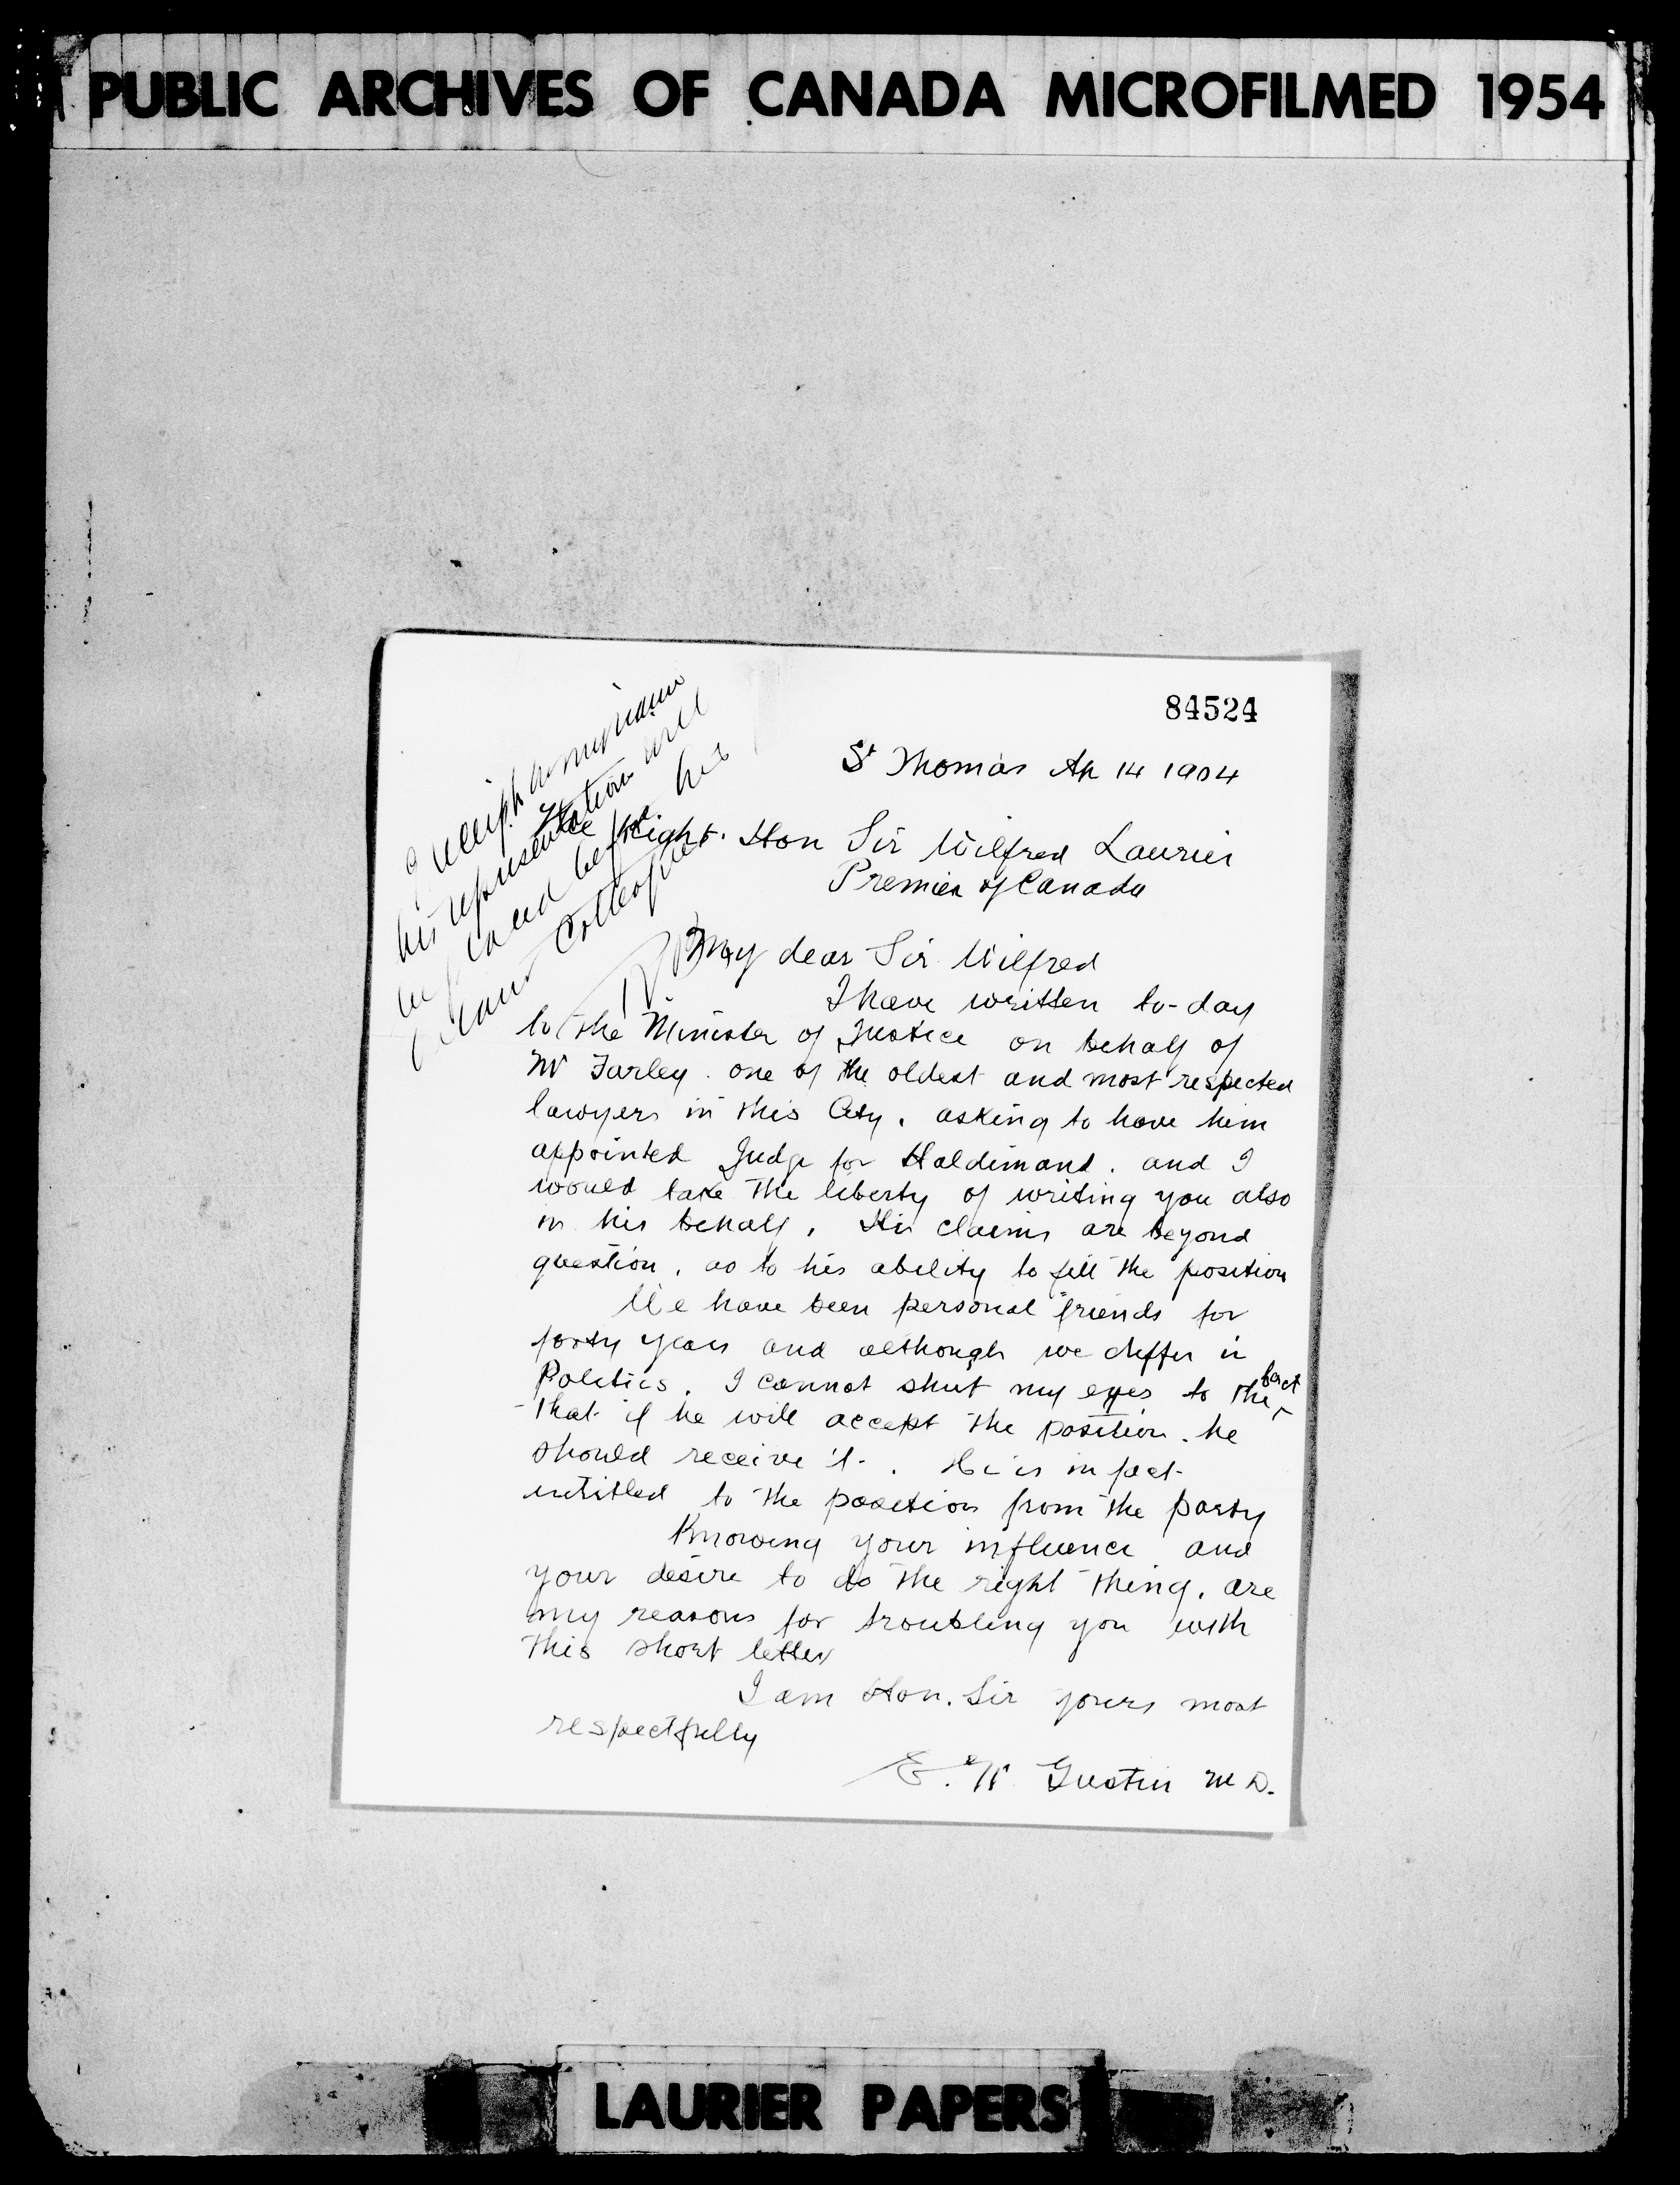 PUBLIC ARCHIVES OF CANADA MICROFILMED 1954
84524
St Thomas Ap 14 1904
his representation will
be his
Right. Hon Sir Wilfred Laurier
Premier of Canada
My dear Sir Wilfred
I have written to-day
to the Minister of Justice on behalf of
Mr Farley. one of the oldest and most respected
lawyers in this City, asking to have him
appointed Judge for Haldimand. and I
would take the liberty of writing you also
in his behalf, His claims are beyond
question, as to his ability to fill the position
We have been personal friends for
forty years and although we differ in
Politics. I cannot shut my eyes to the fact
that if he will accept the position. he
should receive it. He is in fact
entitled to the position from the party
Knowing your influence and
your desire to do the right thing, are
my reasons for troubling you with
this short letter
I am Hon. Sir yours most
respectfully
E. W. Gustin M D.
LAURIER PAPERS